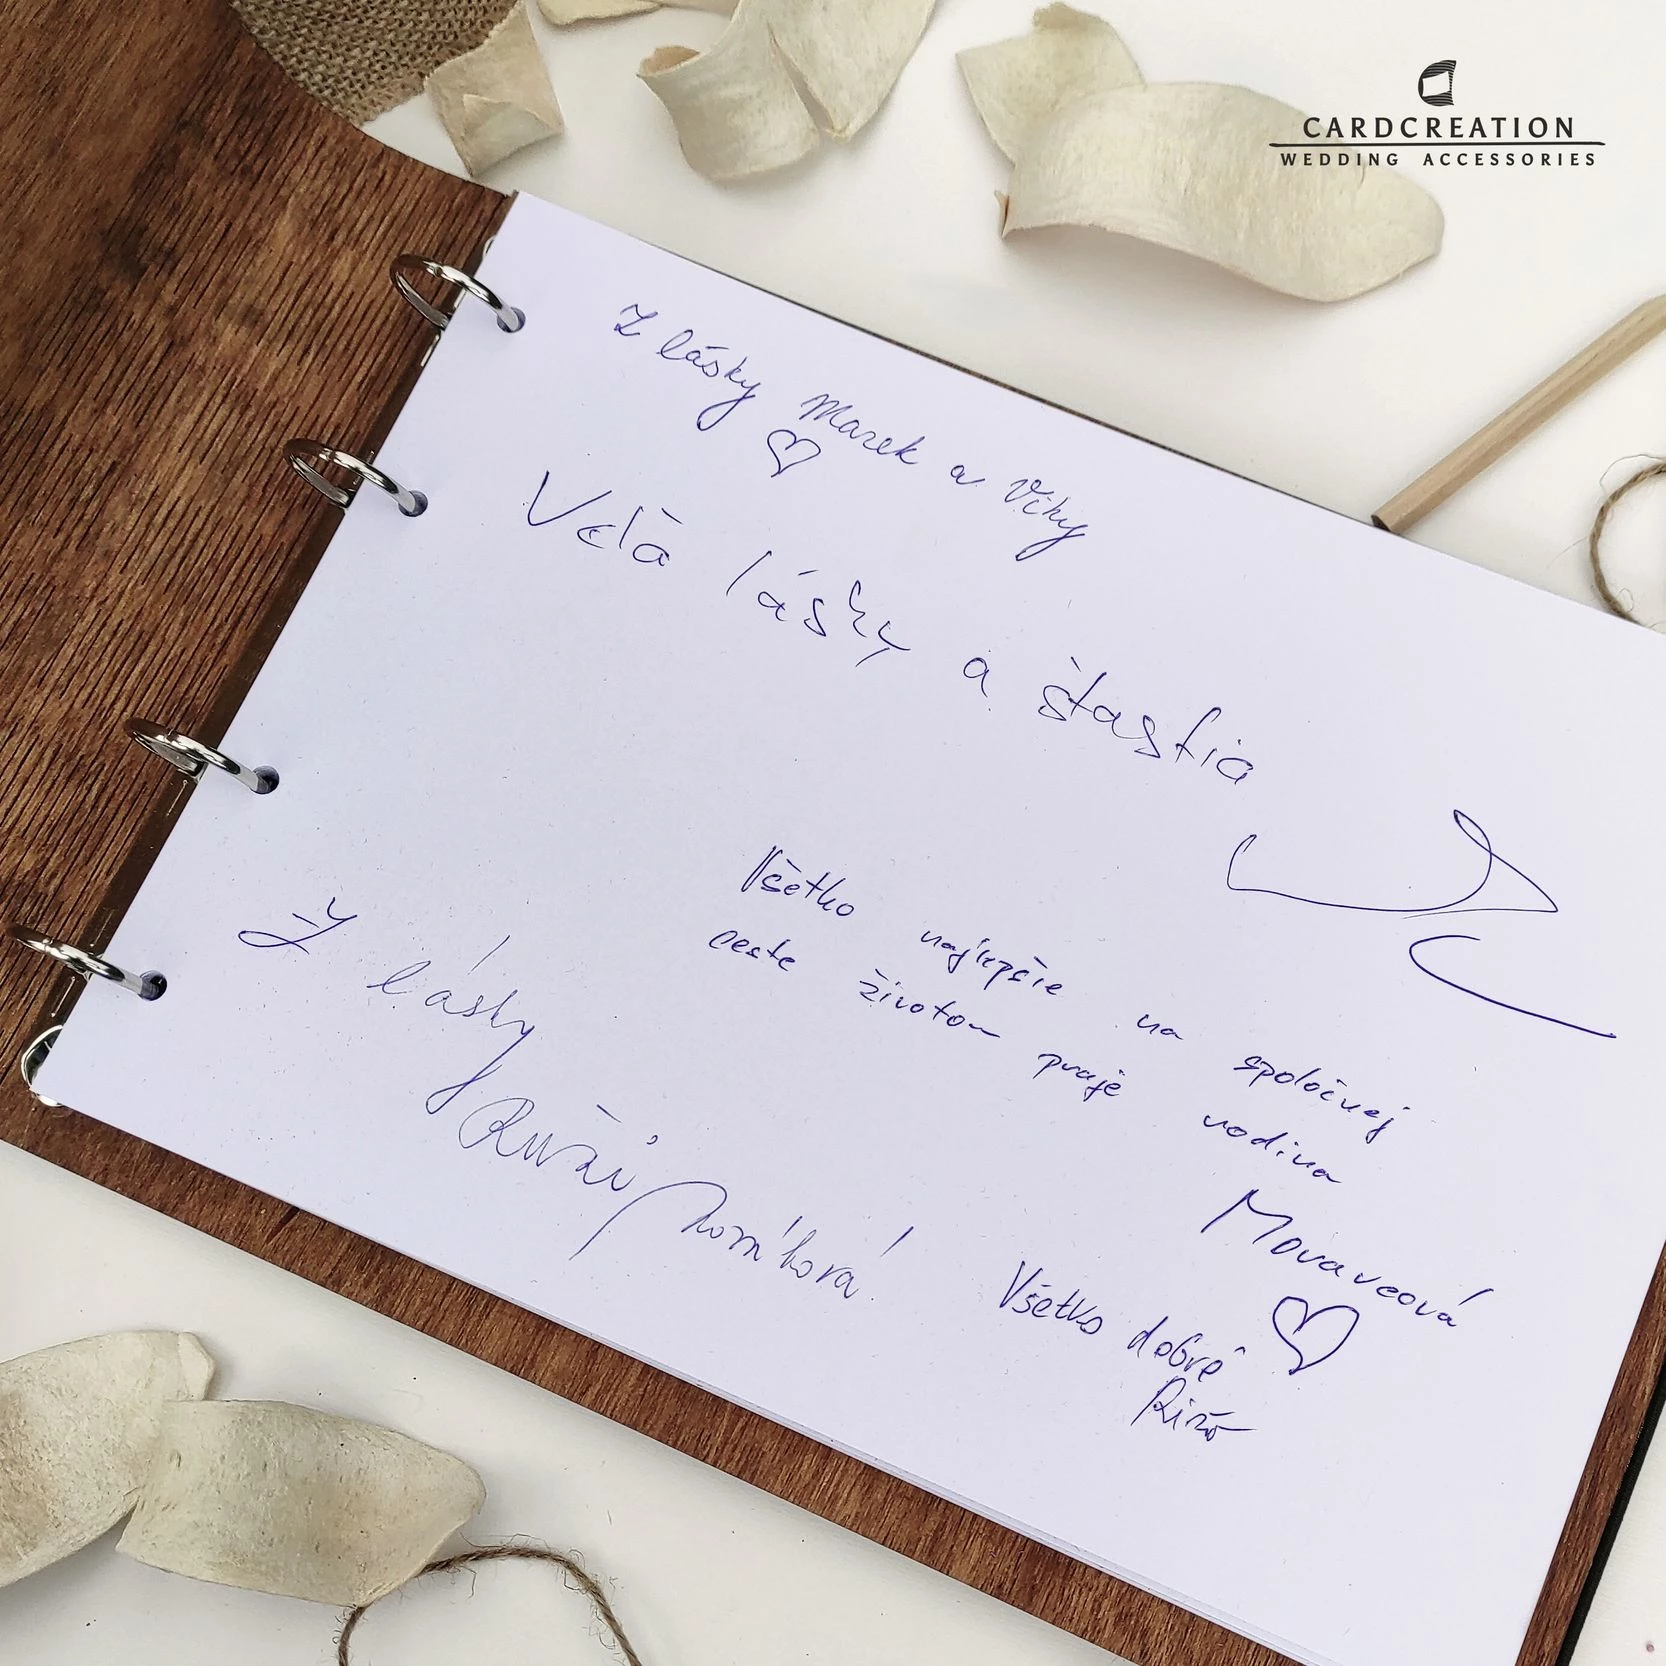 CARDCREATION
WEDDING ACCESSORIES
Z lásky Marek a Viky
Veľa lásky a šťastia
Všetko najlepšie na spoločnej
ceste životom praje rodina
Moravcová
Z lásky
Všetko dobré
Rišo